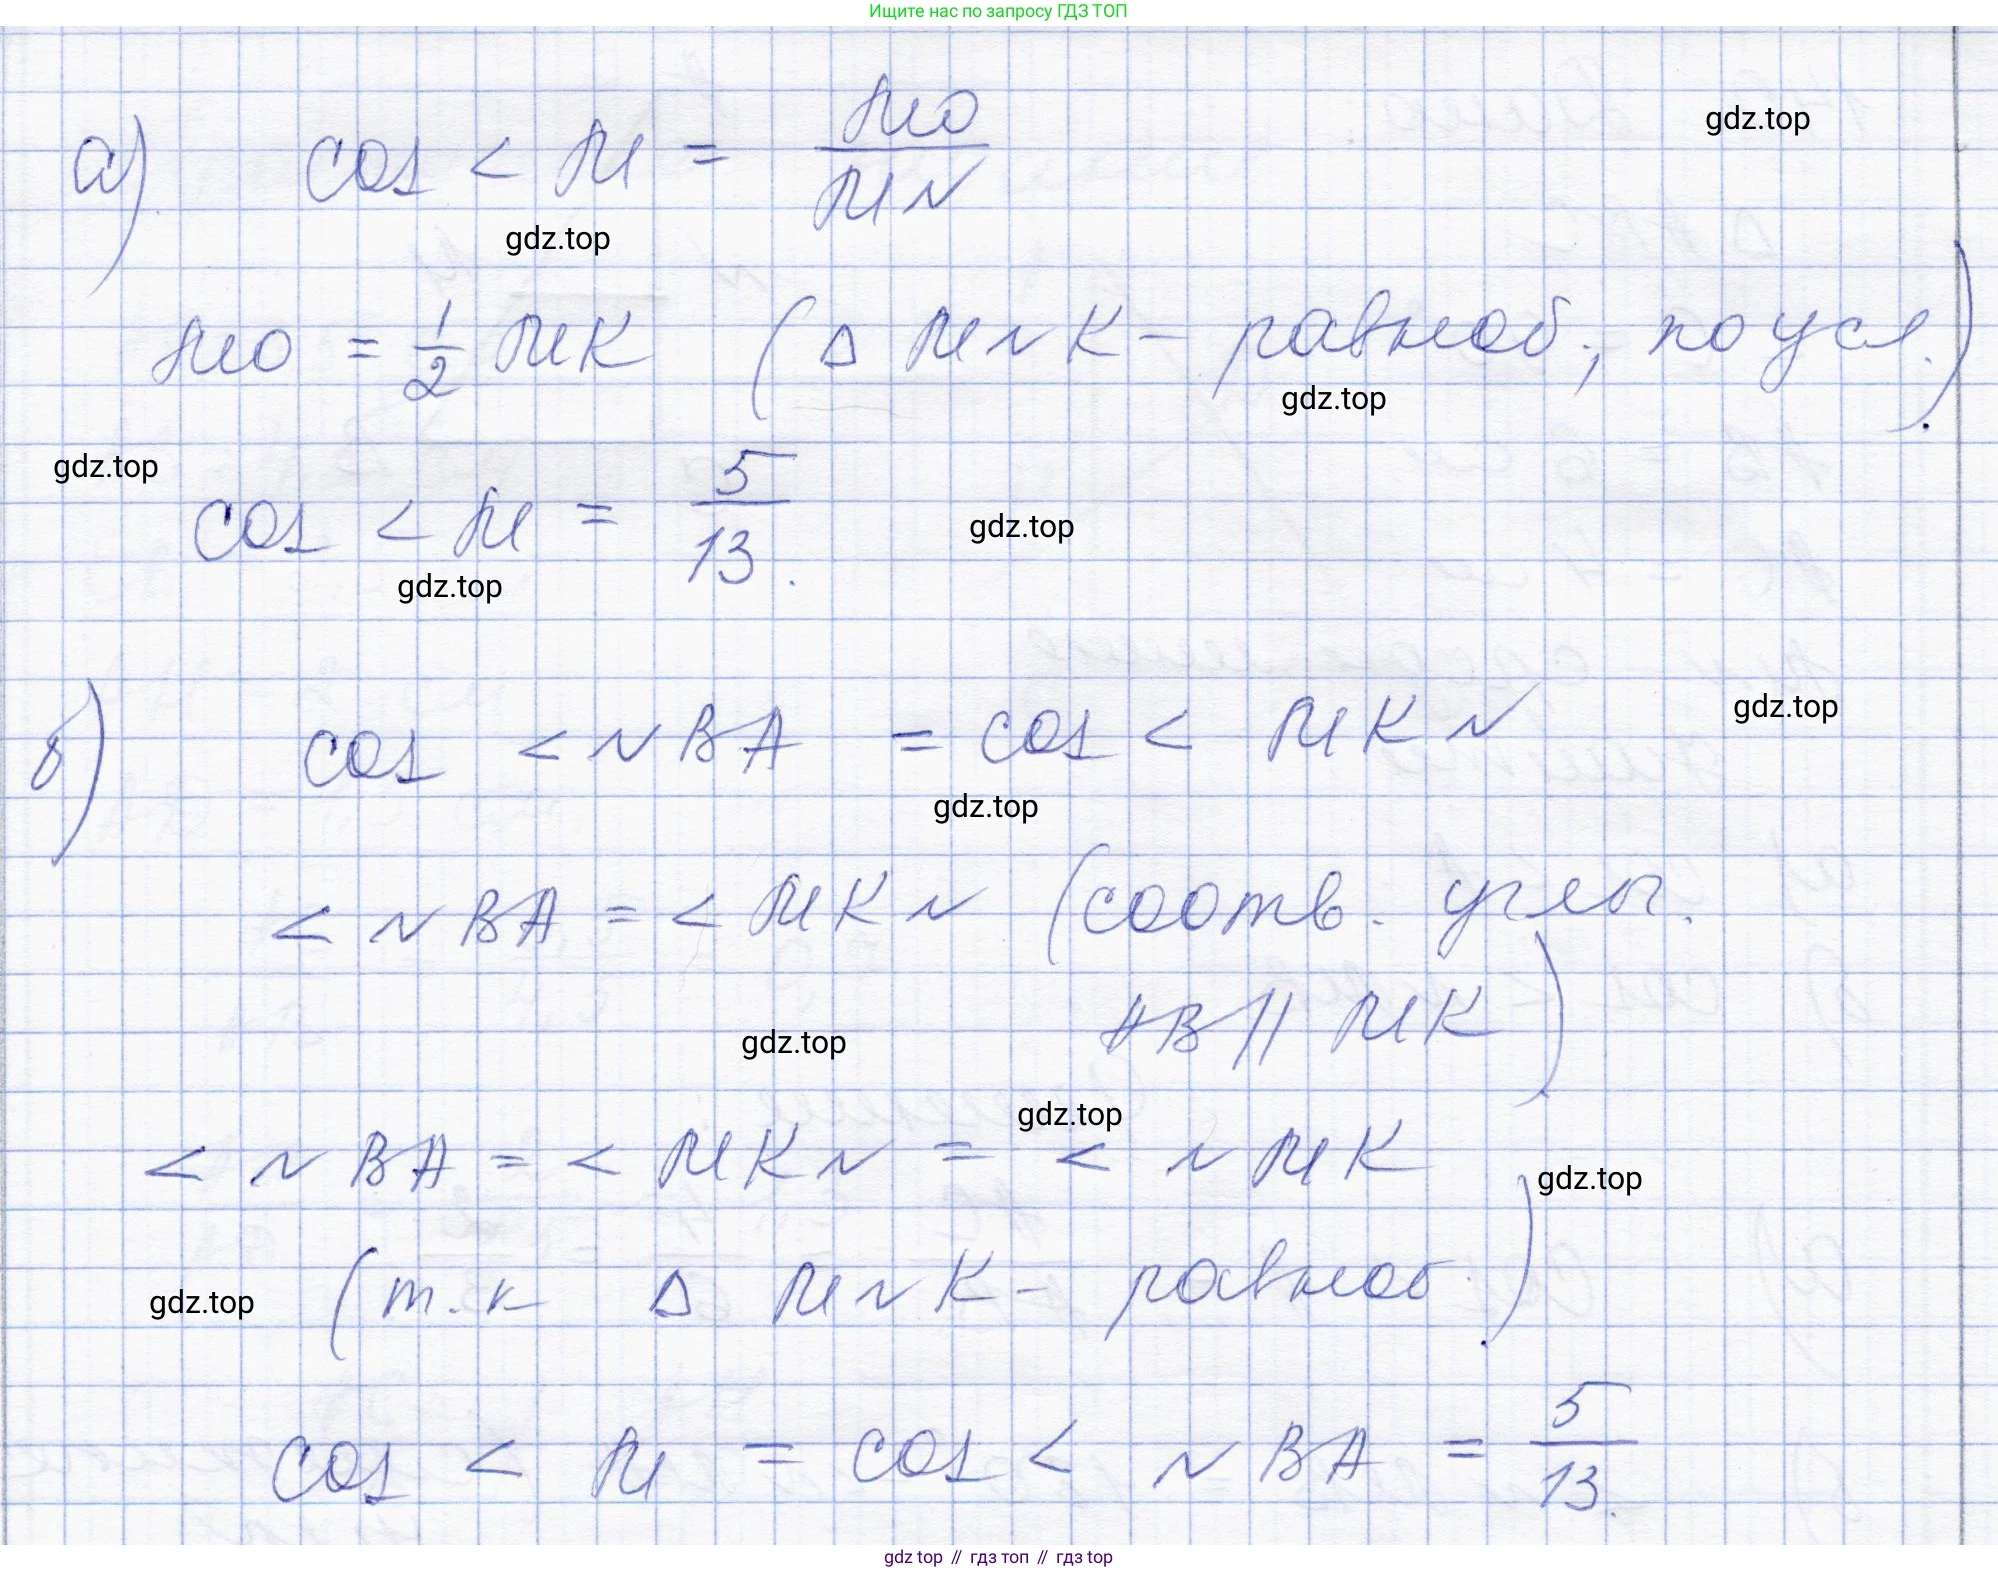 Ищите нас по запросу ГДЗ ТОП
а) cos < M = MO/MN
gdz.top
gdz.top
MO = 1/2 MK (Δ MNK - равноб., по усл.)
gdz.top
gdz.top
cos < M = 5/13.
gdz.top
gdz.top
б) cos < NBA = cos < MKN
gdz.top
gdz.top
< NBA = < MKN (соотв. углы.
AB || MK)
gdz.top
gdz.top
< NBA = < MKN = < NMK
gdz.top
(т.к Δ MNK - равноб.)
gdz.top
cos < M = cos < NBA = 5/13.
gdz top // гдз топ // гдз top